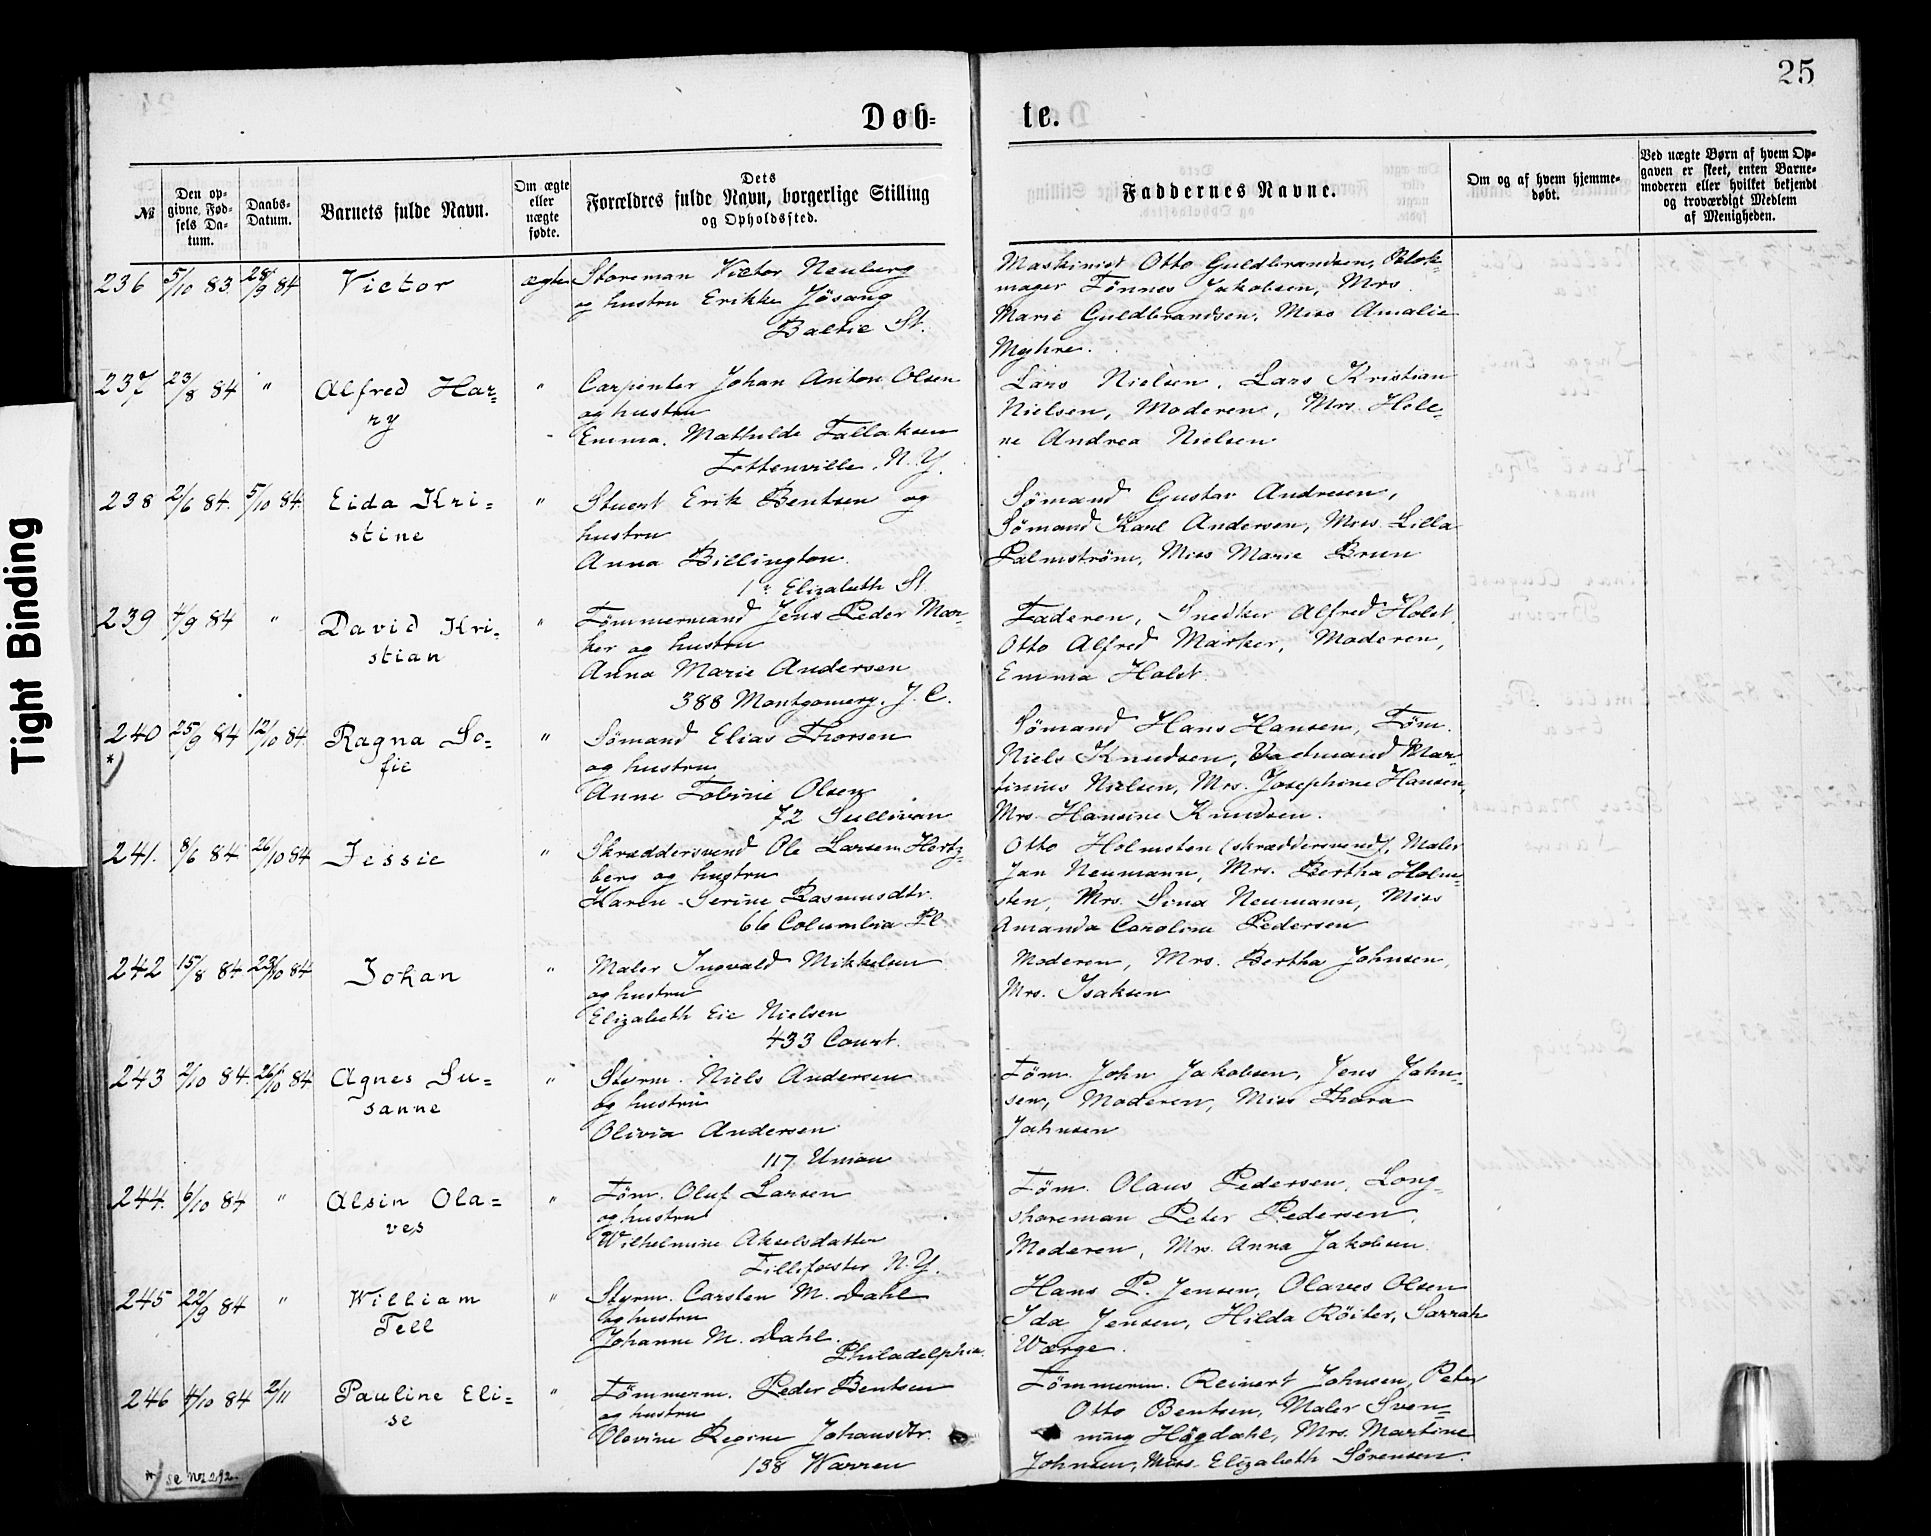 25
Døb-
te.
№
Den op-
givne Fød-
sels Da-
tum.
Daabs-
Datum.
Barnets fulde Navn.
Om ægte
eller
uægte
fødte.
Dets
Forældres fulde Navn, borgerlige Stilling
og Opholdssted.
Faddernes Navne.
Om og af hvem hjemme-
døbt.
Ved uægte Børn af hvem Op-
gaven er skeet, enten Barne-
moderen eller hvilket bekjendt
og troværdigt Medlem
af Menigheden.
236 5/10 83. 28/9 84 Victor ægte Storeman Victor Neuberg
og hustru Erikke Jøsang
Baltic St.
Maskinist Otto Guldbrandsen, Blok-
mager Tönnes Jakobsen, Mrs.
Marie Guldbrandsen, Miss Amalie
Myhre.
237 23/8 84 " Alfred Har-
ry
" Carpenter Johan Anton Olsen
og hustru
Emma Mathilde Tallaksen
Tottenville, N.Y.
Lars Nielsen, Lars Kristian
Nielsen, Moderen, Mrs. Hele-
ne Andrea Nielsen
238 2/6 84. 5/10 84. Eida Kri-
stine
" Stuert Erik Bentsen og
hustru
Anna Billington
Elizabeth St.
Sömand Gustav Andresen,
Sömand Karl Andersen, Mrs. Lilla
Palmström, Miss Marie Brun
239 4/9 84 " David Kri-
stian
" Tömmermand Jens Peder Mar-
ker og hustru
Anna Marie Andersen
388 Montgomery, J.C.
Faderen, Snedker Alfred Holst
Otto Alfred Marker, Moderen,
Emma Holst.
240 25/9 84 12/10 84. Ragna So-
fie
*)
" Sömand Elias Thorsen
og hustru
Anne Tobine Olsen
72 Sullivan
Sömand Hans Hansen, Töm.
Niels Knudsen, Mar-
tinius Nielsen, Mrs. Josephine Hansen,
Mrs. Hansine Knudsen.
241. 8/6 84 26/10 84 Jessie
" Skræddersvend Ole Larsen Hertz-
berg og hustru
Karen Serine Rasmusdtr.
66 Columbia Pl
Otto Holmsten (skræddersvend), Maler
Jan Neumann, Mrs. Bertha Holm-
sten, Mrs. Sina Neumann, Miss
Amanda Caroline Pedersen
242 15/8 84 23/10 84 Johan
" Maler Ingvald Mikkelsen
og hustru
Elizabeth Eie Nielsen
433 Court.
Moderen, Mrs. Bertha Johnsen,
Mrs. Isaksen
243 2/10 84. 26/10 84 Agnes Su-
sanne
" Styrm. Niels Andersen
og hustru
Olivia Andersen
117 Union
Töm. John Jakobsen, Jens Jahn-
sen, Moderen, Miss Thora
Jahnsen
244. 6/10 84 " Alsin Ola-
ves
" Töm. Oluf Larsen
og hustru
Wilhelmine Akselsdatter
N.Y.
Töm. Olaus Pedersen, Long-
shoreman Peter Pedersen,
Moderen, Mrs. Anna Jakobsen
245 22/9 84 " William
Tell
" Styrm. Carsten M. Dahl
og hustru
Johanne M. Dahl.
Philadelphia.
Hans P. Jensen, Olaves Olsen
Ida Jensen, Hilda Röiter, Sarrah
Wærge.
246 4/10 84 2/11 Pauline Eli-
se
" Tömmerm. Peder Bentsen
og hustru
Olovine Regine Johansdtr.
138 Warren
Tömmerm. Reinert Johnsen, Peter
Otto Bentsen, Maler Sven-
ning Högdahl, Mrs. Martine
Johnsen, Miss. Elizabeth Sörensen.
*) se nr 292.
Tight Binding